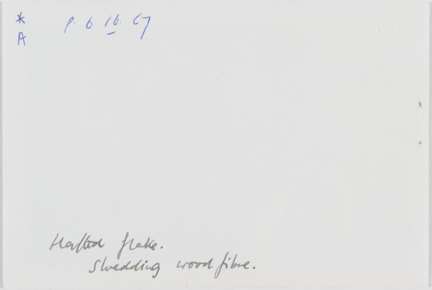 *
A
P. 6 16. 67
Hafted flake.
Shredding wood fibre.